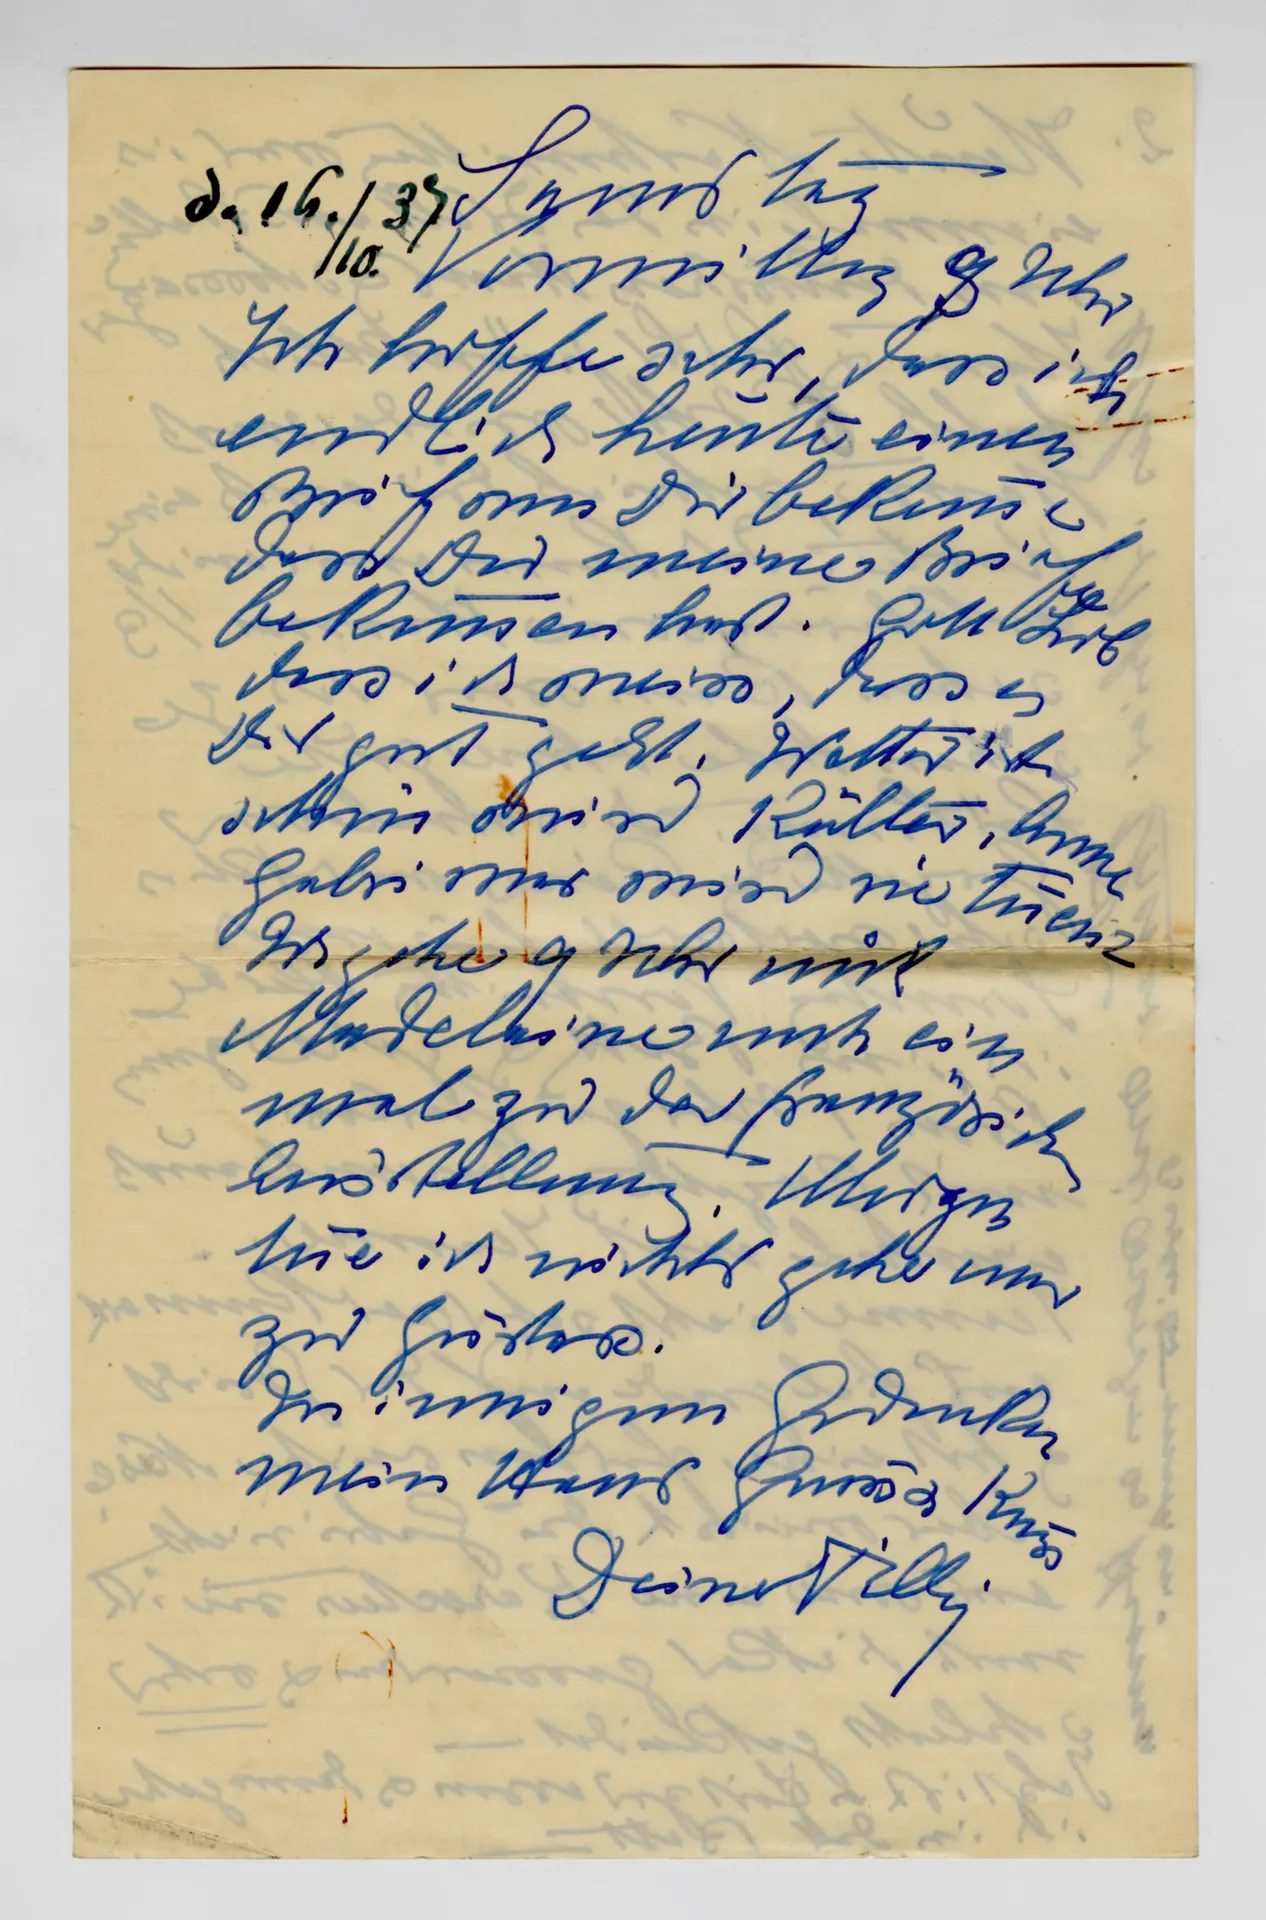 d. 16./10. 37
Samstag
Vormittag 9 Uhr
Ich hoffe sehr, dass ich
endlich heute einen
Brief von Dir bekomme
dass Du meine Brief
bekommen hast. Gott Lob
dass ich weiss, dass es
Dir gut geht. Wetter ist
schön wird Kälter,
Gabri war wird sie
Ich gehe 9 Uhr mit
Madelaine noch ein
mal zu der französisch
Ausstellung. Morgen
tue ich nichts gehe nur
zu Gustav.
In innigem Gedenken
mein Hans Grüsse Kuss
Deine Villy